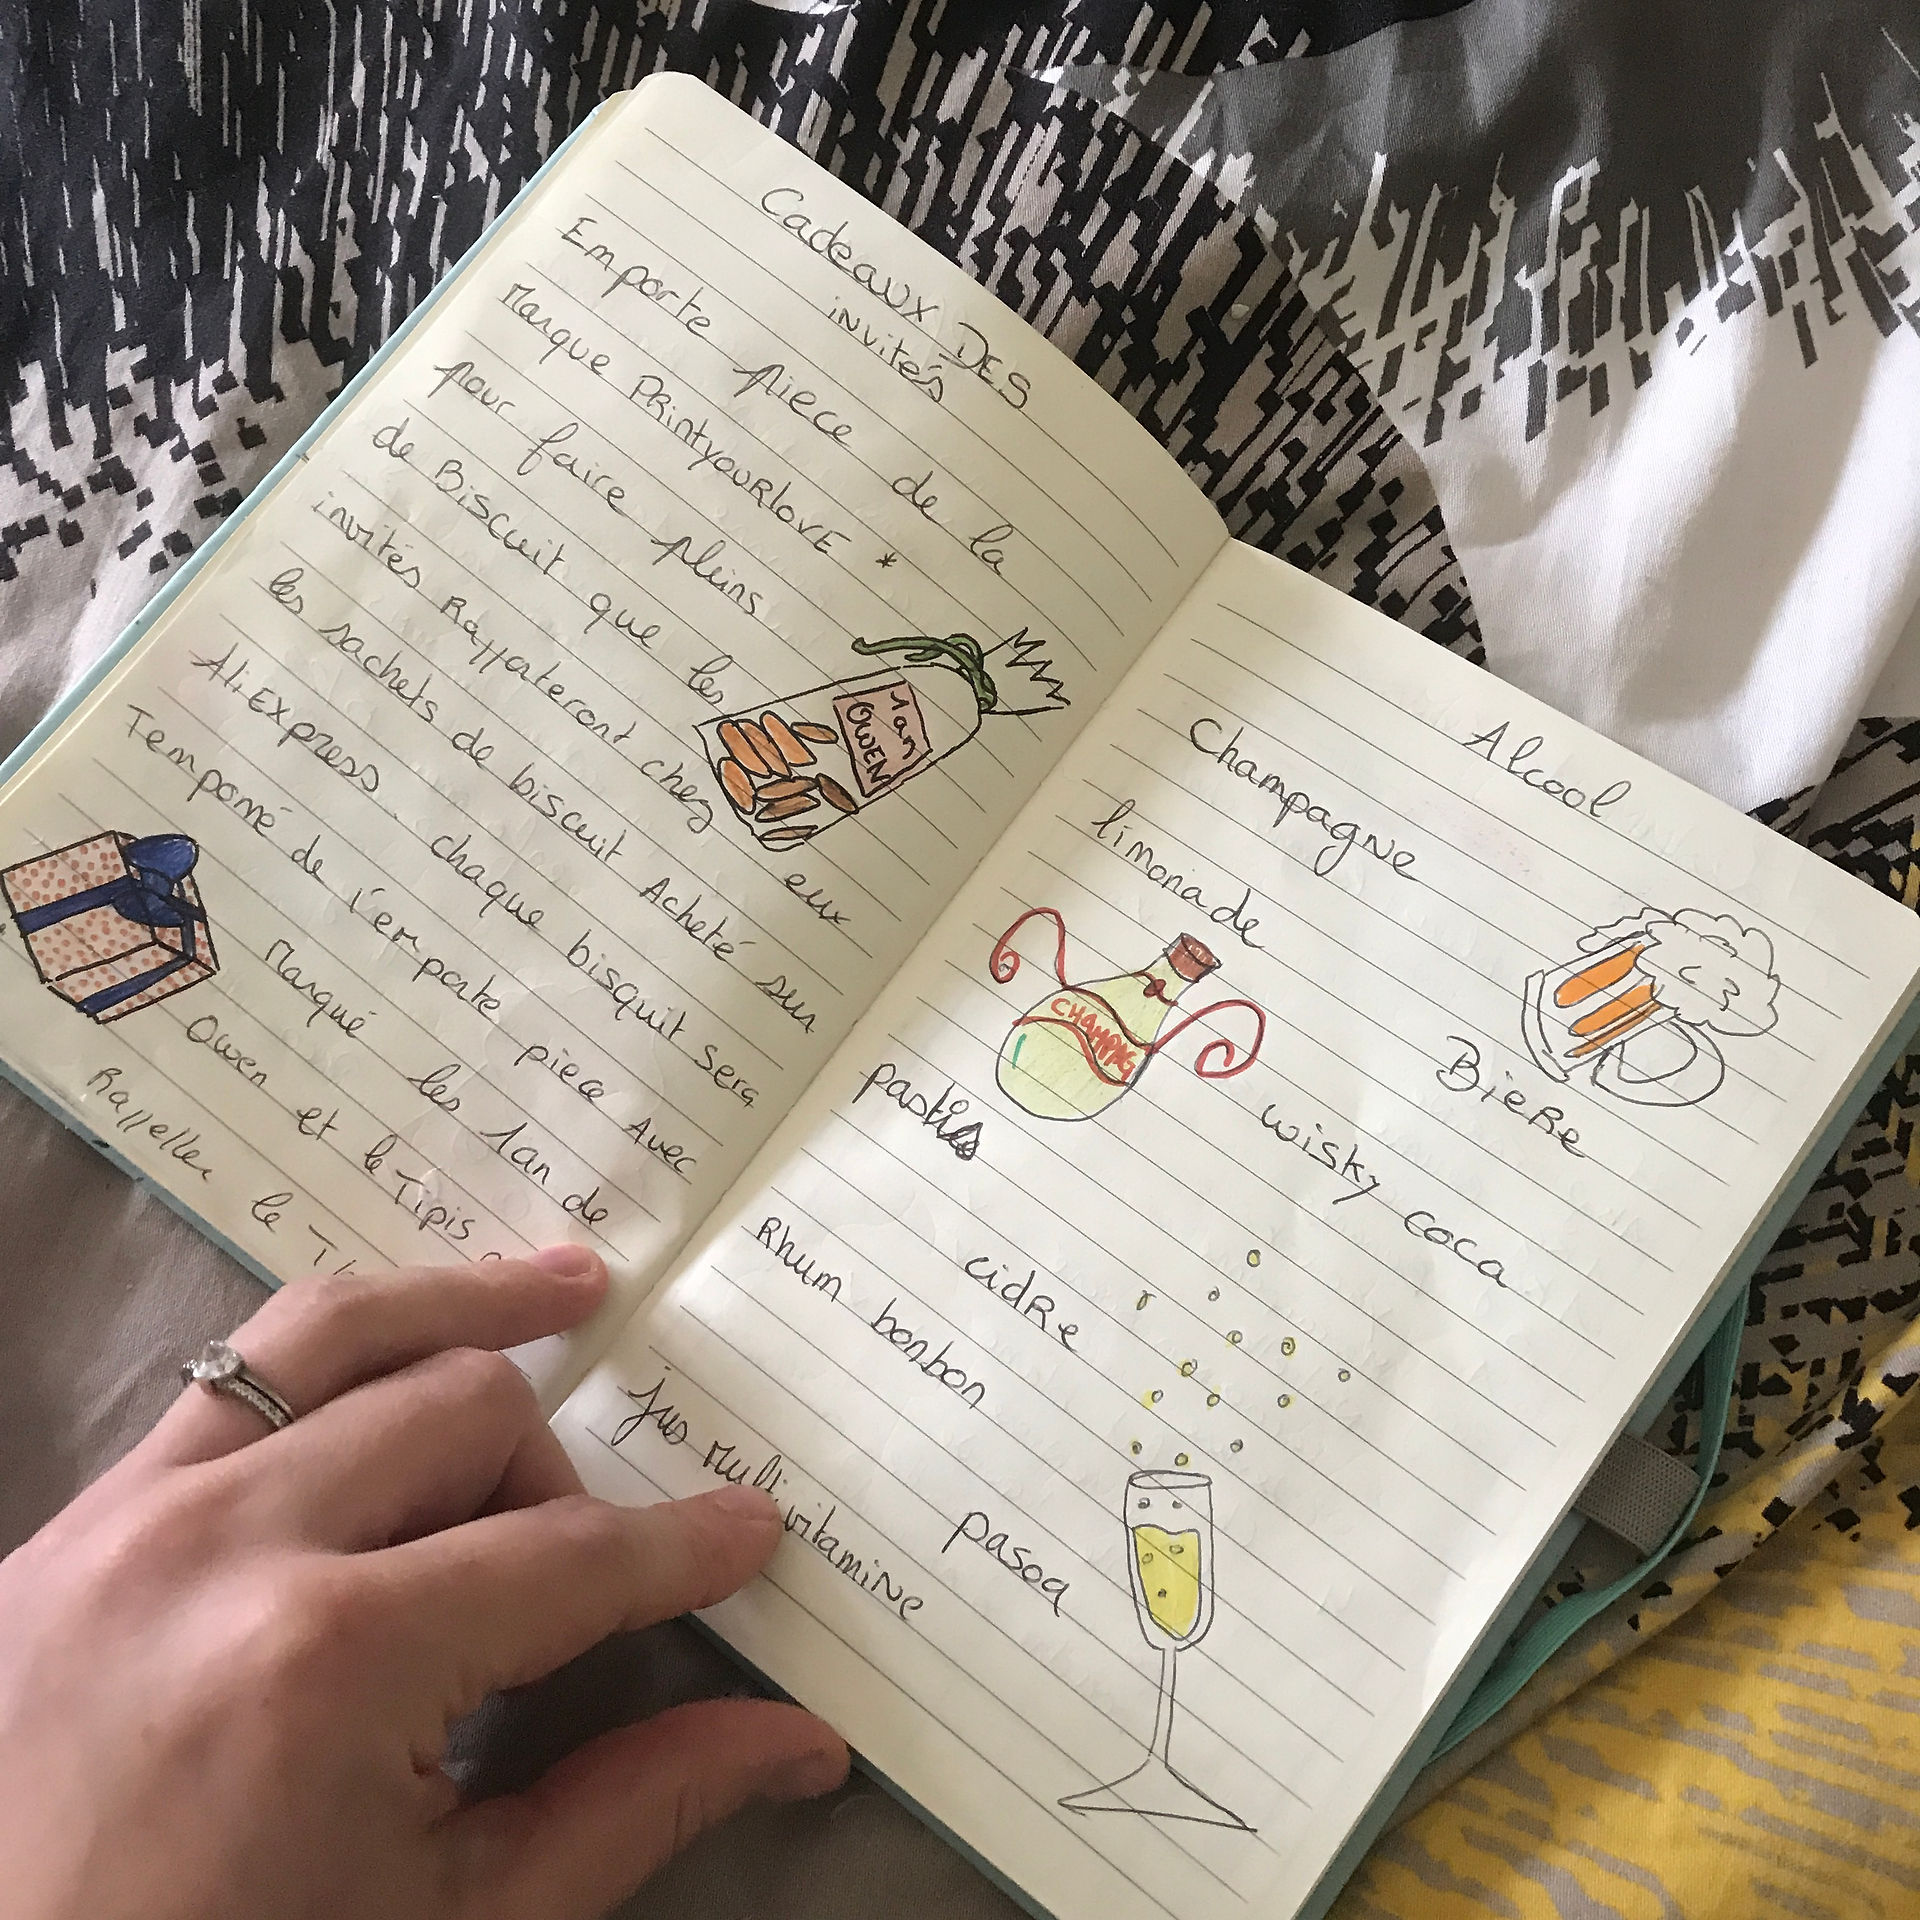 Cadeaux DES
invités
Emporte piece de la
Marque PRintyouRlovE *
pour faire pleins
de Biscuit que les
invités Rapporteront chez eux
les sachets de biscuit Acheté sur
AliExpress. chaque bisquit sera
Temponé de l'emporte piece Avec
Marqué les 1an de
Owen et le Tipis
Rappeller le
1 an
OWEN
Alcool
Champagne
limonade
CHAMPAG
Biere
pastis
wisky coca
cidre
Rhum bonbon
jus multivitamine
pasoa